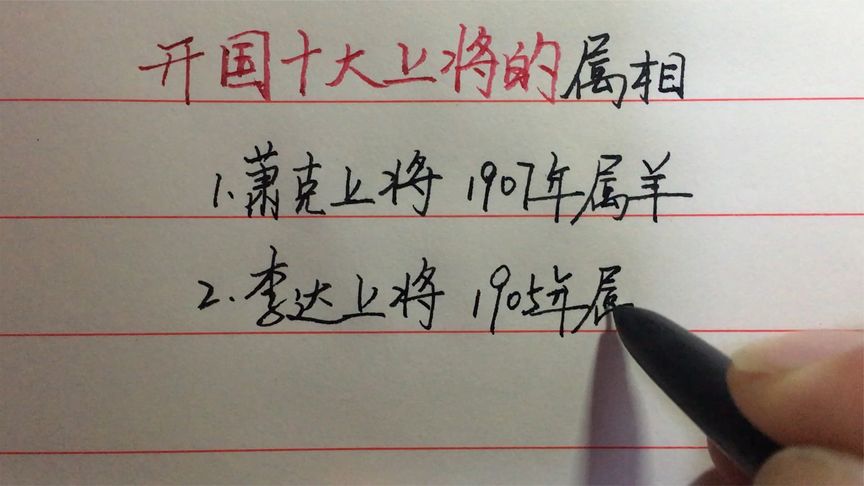 开国十大上将的属相
1.萧克上将 1907年属羊
2.李达上将 1905年属